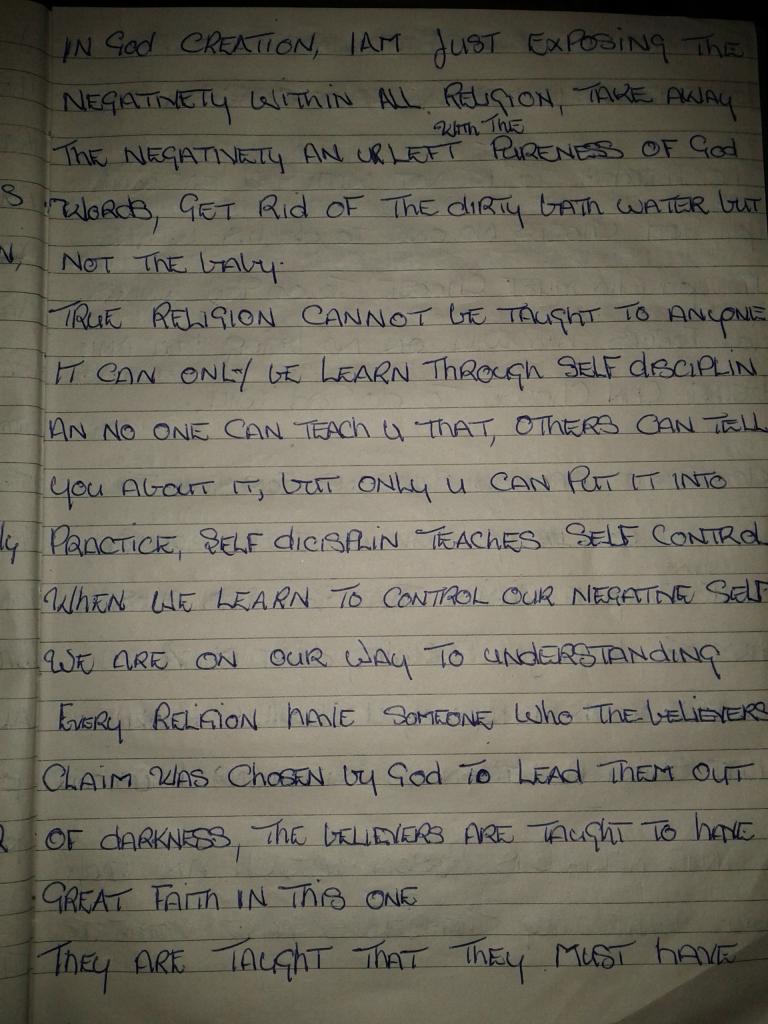 IN God CREATION, I AM JUST EXPOSING THE
NEGATIVETY WITHIN ALL RELIGION, TAKE AWAY
With The
THE NEGATIVETY AN UR LEFT PURENESS OF God
WORDS, GET Rid OF THE dIRTY bATH WATER bUT
NOT THE bAby.
TRUE RELIGION CANNOT bE TAUGHT TO ANYONE
IT CAN ONLY bE LEARN THROUGH SELF dISCIPLIN
AN NO ONE CAN TEACH U THAT, OTHERS CAN TELL
YOU AbOUT IT, bUT ONLY U CAN PUT IT INTO
PRACTICE, SELF dICISPLIN TEACHES SELF CONTROL
WHEN WE LEARN TO CONTROL OUR NEGATIVE SELF
WE ARE ON OUR WAY TO UNDERSTANDING
EVERY RELIGION HAVE SOMEONE WHO THE bELIEVERS
CLAIM WAS CHOSEN by God TO LEAD THEM OUT
OF dARKNESS, THE bELIEVERS ARE TAUGHT TO HAVE
GREAT FAITH IN THIS ONE
THEY ARE TAUGHT THAT THEY MUST HAVE